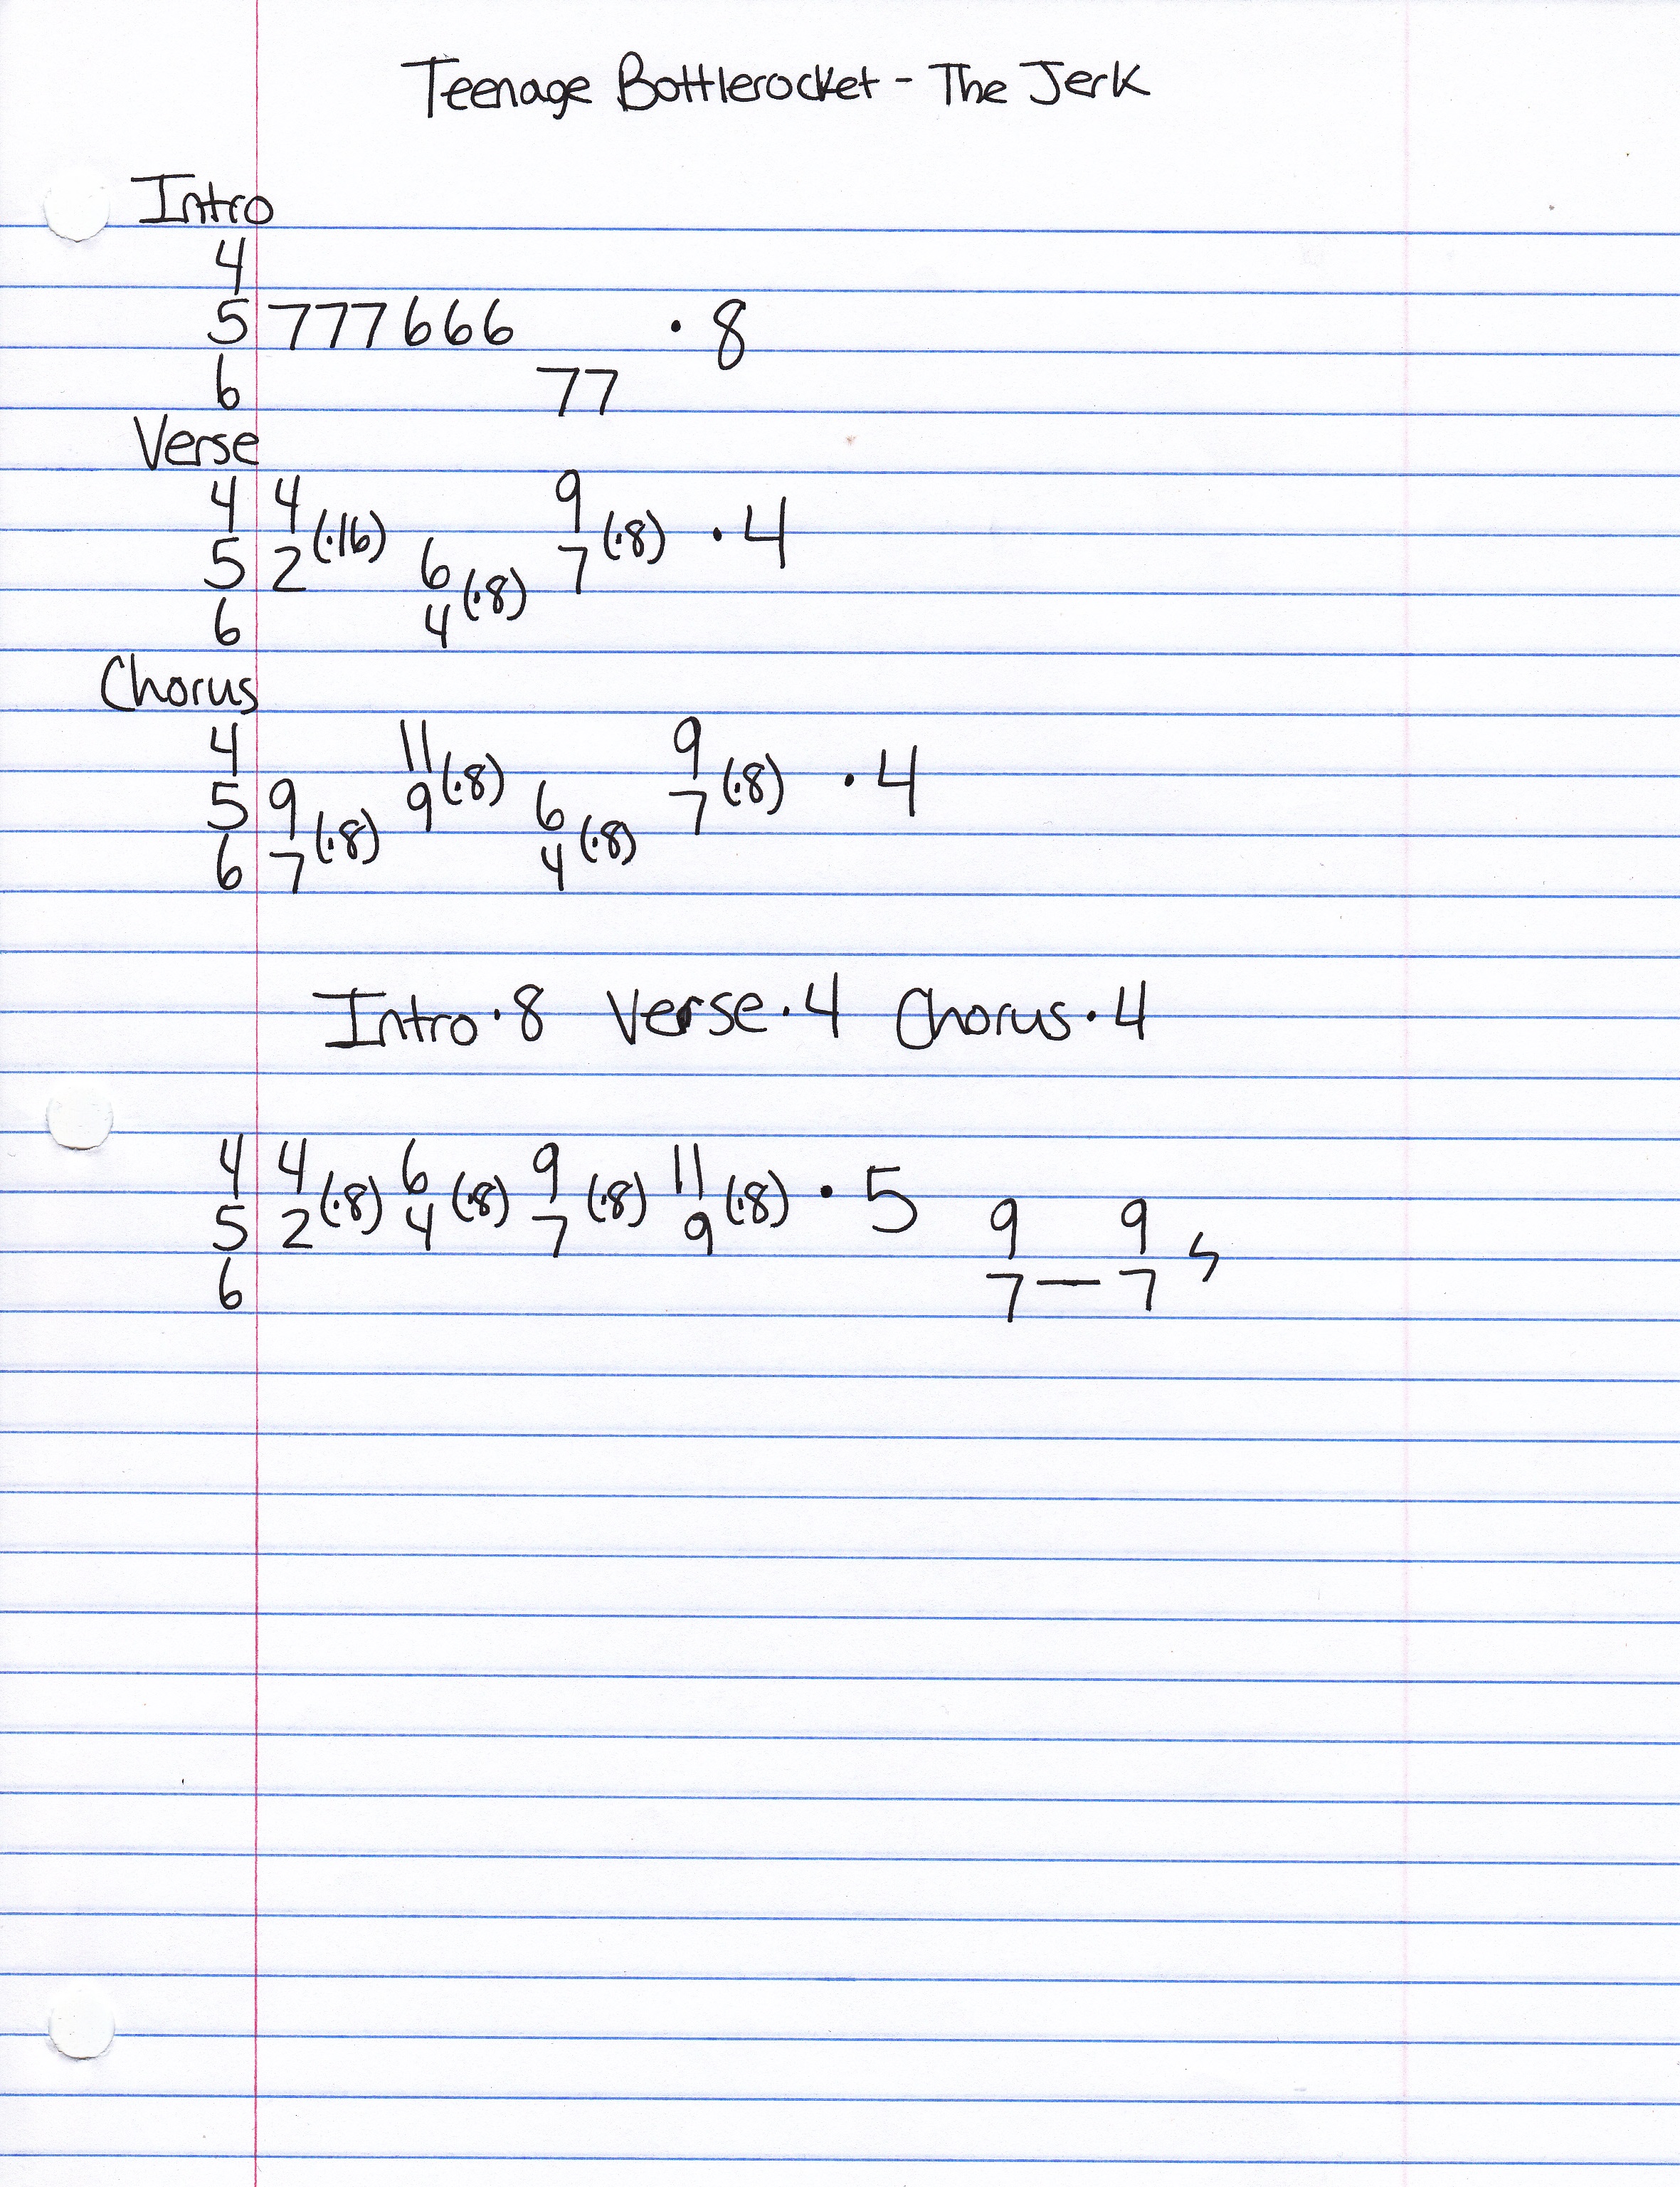 Teenage Bottlerocket - The Jerk
Intro
4
5 777666 · 8
6 77
Verse
4 4 9
5 2 (·16) 6 7 (·8) · 4
6 4 (·8)
Chorus
4 11 9
5 9 9 (·8) 6 7 (·8) · 4
6 7 (·8) 4 (·8)
Intro · 8 Verse · 4 Chorus · 4
4 4 6 9 11
5 2 (·8) 4 (·8) 7 (·8) 9 (·8) · 5 9 9
6 7 — 7